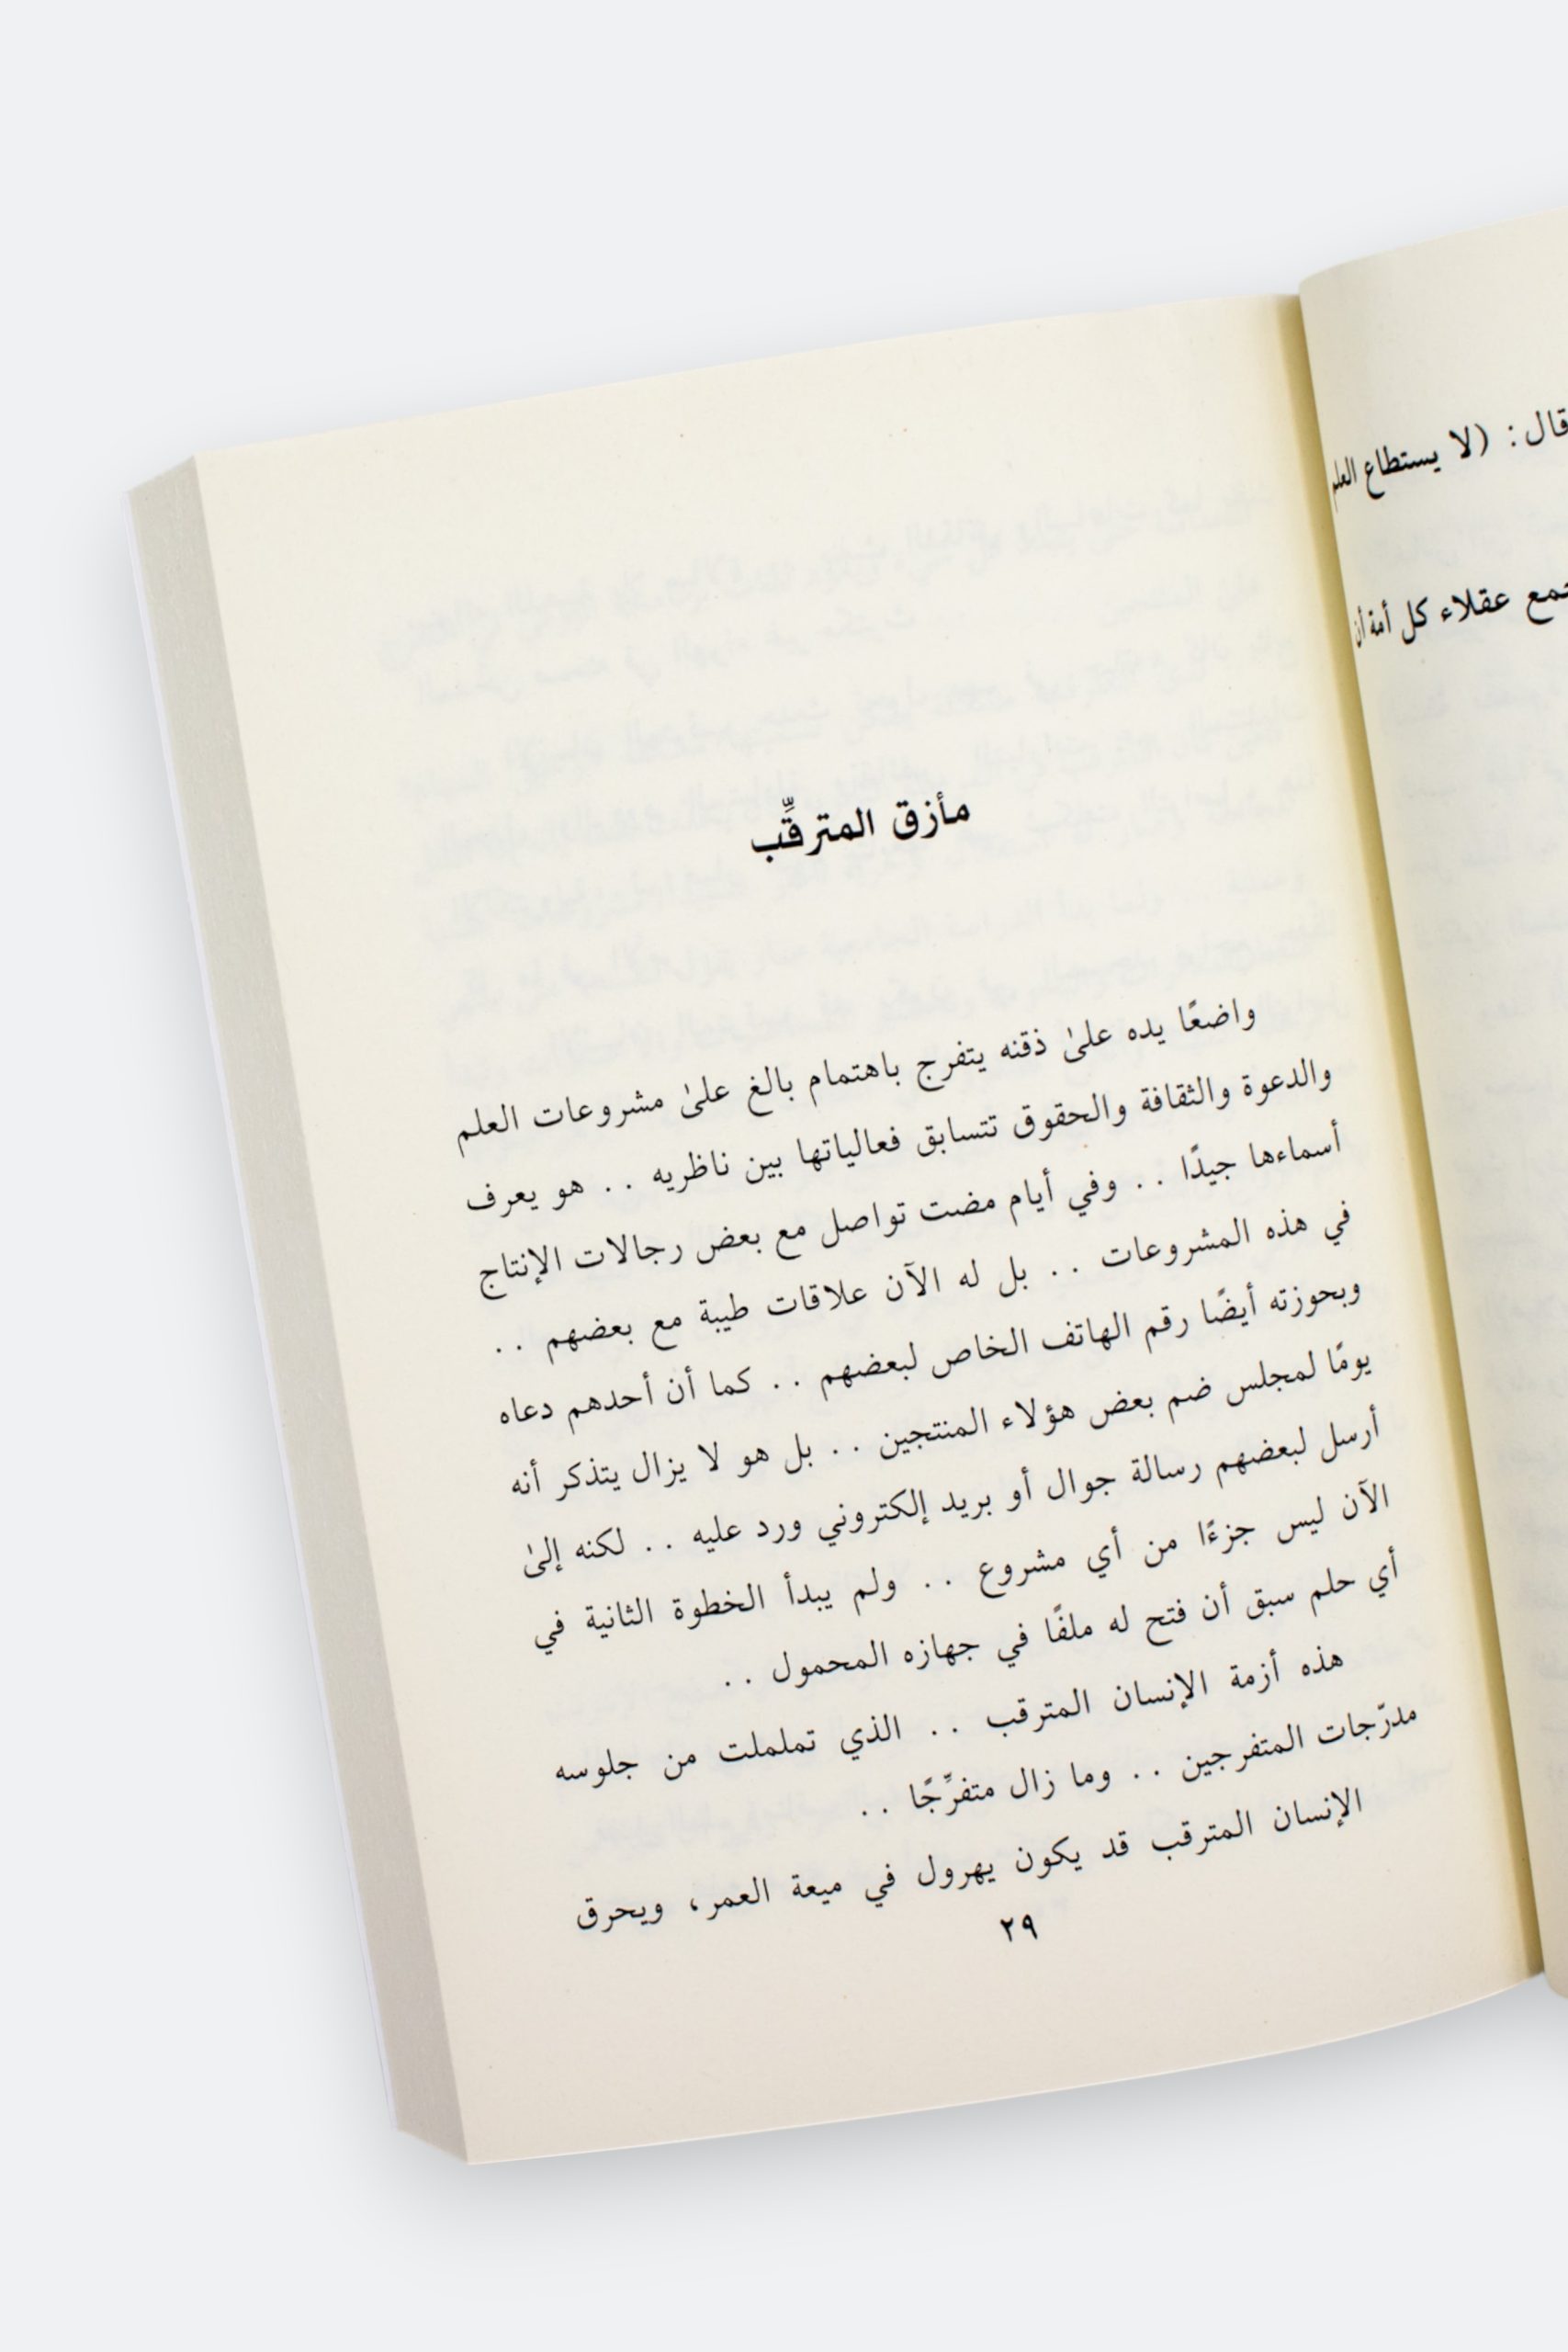 قال: (لا يستطاع العلم
جمع عقلاء كل أمة أن
مأزق المترقِّب
واضعًا يده علىٰ ذقنه يتفرج باهتمام بالغ علىٰ مشروعات العلم
والدعوة والثقافة والحقوق تتسابق فعالياتها بين ناظريه . . هو يعرف
أسماءها جيدًا . . وفي أيام مضت تواصل مع بعض رجالات الإنتاج
في هذه المشروعات . . بل له الآن علاقات طيبة مع بعضهم . .
وبحوزته أيضًا رقم الهاتف الخاص لبعضهم . . كما أن أحدهم دعاه
يومًا لمجلس ضم بعض هؤلاء المنتجين . . بل هو لا يزال يتذكر أنه
أرسل لبعضهم رسالة جوال أو بريد إلكتروني ورد عليه . . لكنه إلىٰ
الآن ليس جزءًا من أي مشروع . . ولم يبدأ الخطوة الثانية في
أي حلم سبق أن فتح له ملفًا في جهازه المحمول . .
هذه أزمة الإنسان المترقب . . الذي تململت من جلوسه
مدرّجات المتفرجين . . وما زال متفرِّجًا . .
الإنسان المترقب قد يكون يهرول في ميعة العمر، ويحرق
٢٩